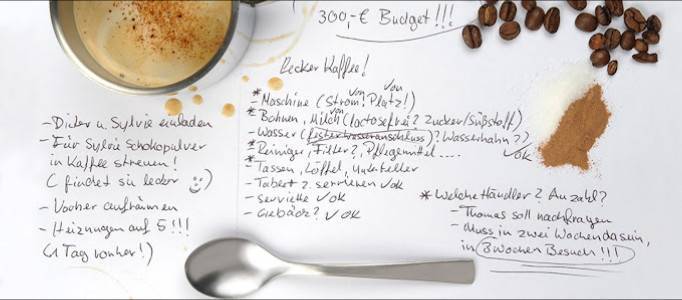 300,-€ Budget!!!
Lecker Kaffee!
- Dieter u. Sylvie einladen
- Für Sylvie Schokopulver
in Kaffee streuen!
(findet sie lecker :))
- Vorher aufräumen
- Heizungen auf 5!!!
(1 Tag vorher!)
* Maschine (von Strom! von Platz!)
* Bohnen, Milch (von lactosefrei? Zucker/Süßstoff)
- Wasser (fester Wasseranschluss)? Wasserhahn?)
* Reiniger, Filter?, Pflegemittel.... ✓OK
* Tassen, Löffel, Unterteller
- Tablet z. servieren ✓OK
- Serviette ✓OK
- Gebäck? ✓OK
* Welche Händler? Anzahl?
- Thomas soll nachfragen
- Muss in zwei Wochen da sein,
in 3 Wochen Besuch!!!